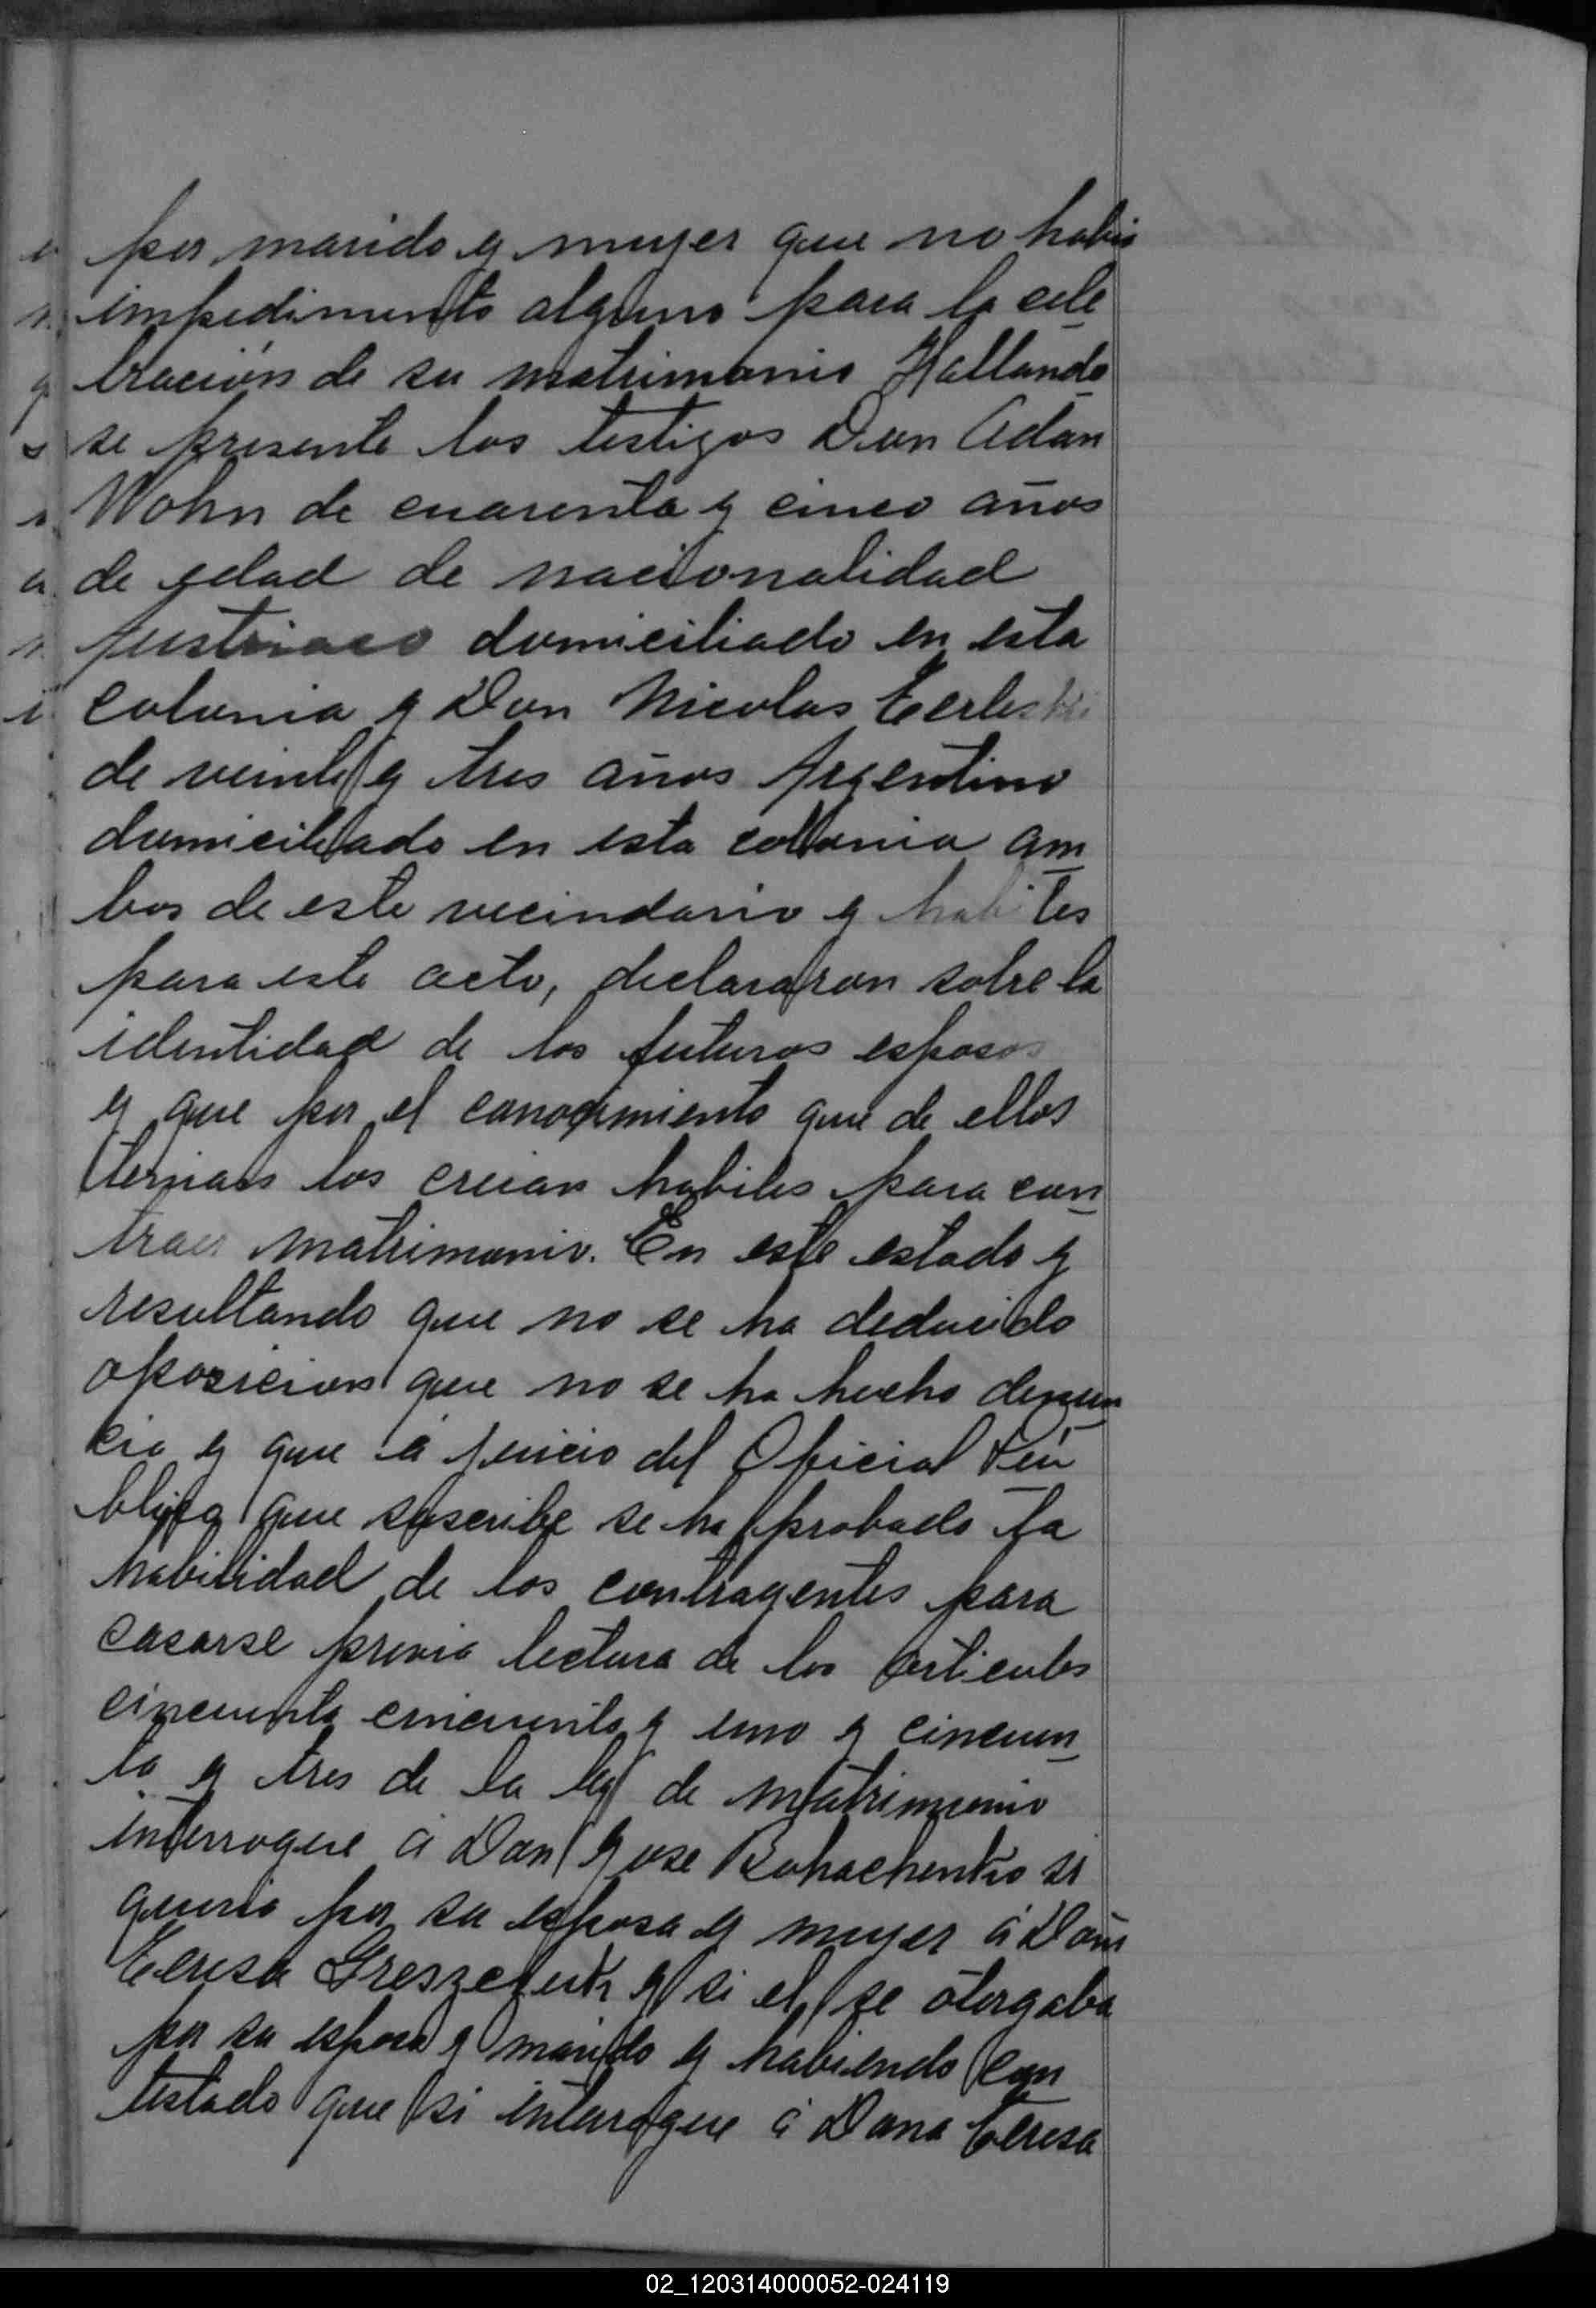 por marido y mujer que no habia
impedimento alguno para la cele
bración de su matrimonio Hallando
se presente los testigos Don Adan
Wohn de cuarenta y cinco años
de edad de nacionalidad
Austriaco domiciliado en esta
colonia y Don Nicolas
de veinte y tres años Argentino
domiciliado en esta colonia am
bos de este vecindario y habiles
para este acto, declararon sobre la
identidad de los futuros esposos
y que por el conocimiento que de ellos
tenian los creian habiles para con
traer matrimonio. En este estado y
resultando que no se ha deducido
oposicion que no se ha hecho denun
cia y que á juicio del Oficial Pú
blico que suscribe se ha probado la
habilidad de los contrayentes para
casarse previa lectura de los articulos
cincuenta cincuenta y uno y cincuen
ta y tres de la ley de matrimonio
interrogue á Don Jose Bohachenko si
queria por su esposa y mujer á Doña
Teresa y si el se otorgaba
por su esposo y marido y habiendo con
testado que si interrogue á Dona Teresa
02_120314000052-024119